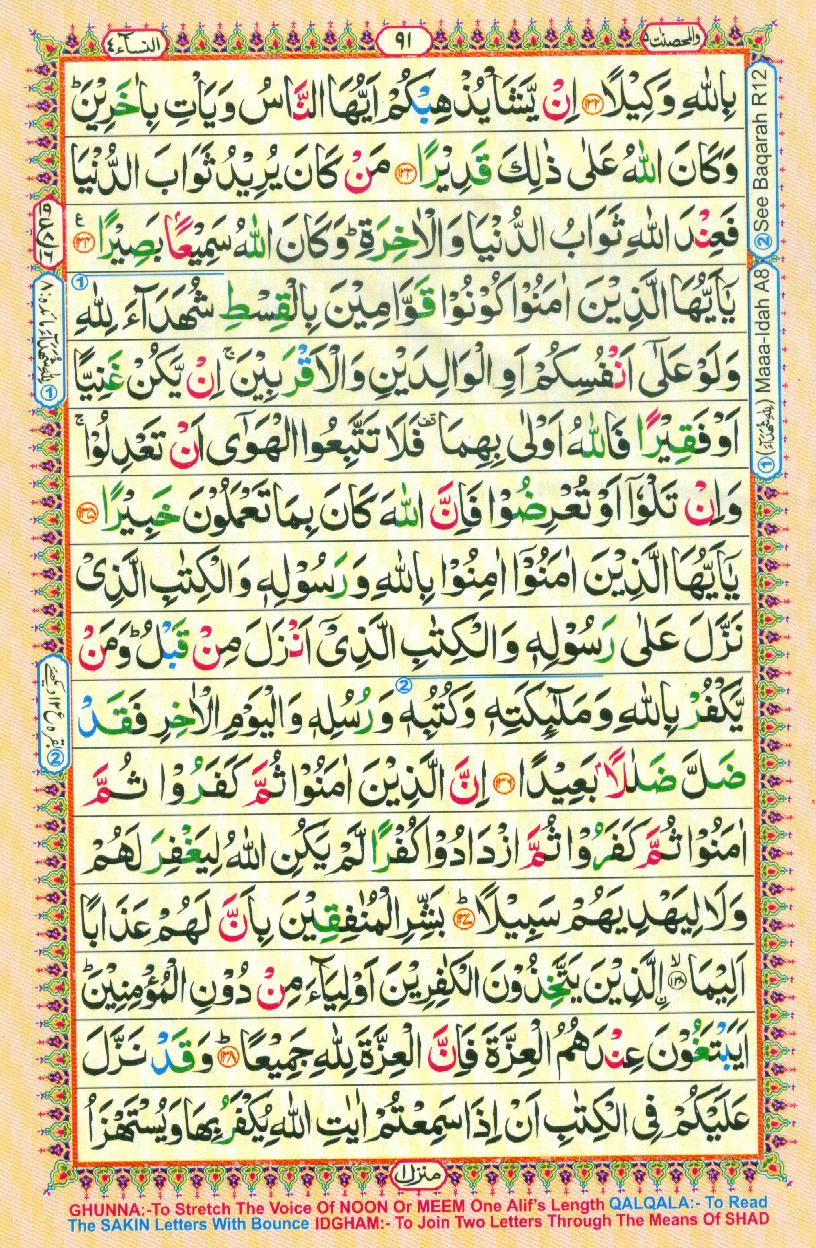 النساء٤
٩١
والمحصنت٥
بِاللّٰهِ وَكِيْلًا ﴿۱۳۲﴾ اِنْ يَّشَاْ يُذْهِبْكُمْ اَيُّهَا النَّاسُ وَيَاْتِ بِاٰخَرِيْنَ ؕ
وَكَانَ اللّٰهُ عَلٰى ذٰلِكَ قَدِيْرًا ﴿۱۳۳﴾ مَنْ كَانَ يُرِيْدُ ثَوَابَ الدُّنْيَا
فَعِنْدَ اللّٰهِ ثَوَابُ الدُّنْيَا وَالْاٰخِرَةِ ؕ وَكَانَ اللّٰهُ سَمِيْعًۢا بَصِيْرًا ﴿۱۳۴﴾
يٰۤاَيُّهَا الَّذِيْنَ اٰمَنُوْا كُوْنُوْا قَوّٰمِيْنَ بِالْقِسْطِ شُهَدَآءَ لِلّٰهِ
وَلَوْ عَلٰۤى اَنْفُسِكُمْ اَوِ الْوَالِدَيْنِ وَالْاَقْرَبِيْنَ ۚ اِنْ يَّكُنْ غَنِيًّا
اَوْ فَقِيْرًا فَاللّٰهُ اَوْلٰى بِهِمَا ۫ فَلَا تَتَّبِعُوا الْهَوٰۤى اَنْ تَعْدِلُوْا ۚ
وَاِنْ تَلْوٗۤا اَوْ تُعْرِضُوْا فَاِنَّ اللّٰهَ كَانَ بِمَا تَعْمَلُوْنَ خَبِيْرًا ﴿۱۳۵﴾
يٰۤاَيُّهَا الَّذِيْنَ اٰمَنُوْۤا اٰمِنُوْا بِاللّٰهِ وَرَسُوْلِهٖ وَالْكِتٰبِ الَّذِيْ
نَزَّلَ عَلٰى رَسُوْلِهٖ وَالْكِتٰبِ الَّذِيْۤ اَنْزَلَ مِنْ قَبْلُ ؕ وَمَنْ
يَّكْفُرْ بِاللّٰهِ وَمَلٰٓئِكَتِهٖ وَكُتُبِهٖ وَرُسُلِهٖ وَالْيَوْمِ الْاٰخِرِ فَقَدْ
ضَلَّ ضَلٰلًۢا بَعِيْدًا ﴿۱۳۶﴾ اِنَّ الَّذِيْنَ اٰمَنُوْا ثُمَّ كَفَرُوْا ثُمَّ
اٰمَنُوْا ثُمَّ كَفَرُوْا ثُمَّ ازْدَادُوْا كُفْرًا لَّمْ يَكُنِ اللّٰهُ لِيَغْفِرَ لَهُمْ
وَلَا لِيَهْدِيَهُمْ سَبِيْلًا ؕ﴿۱۳۷﴾ بَشِّرِ الْمُنٰفِقِيْنَ بِاَنَّ لَهُمْ عَذَابًا
اَلِيْمَا ۙ﴿۱۳۸﴾ الَّذِيْنَ يَتَّخِذُوْنَ الْكٰفِرِيْنَ اَوْلِيَآءَ مِنْ دُوْنِ الْمُؤْمِنِيْنَ ؕ
اَيَبْتَغُوْنَ عِنْدَهُمُ الْعِزَّةَ فَاِنَّ الْعِزَّةَ لِلّٰهِ جَمِيْعًا ؕ﴿۱۳۹﴾ وَقَدْ نَزَّلَ
عَلَيْكُمْ فِي الْكِتٰبِ اَنْ اِذَا سَمِعْتُمْ اٰيٰتِ اللّٰهِ يُكْفَرُ بِهَا وَيُسْتَهْزَاُ
منزل١
② See Baqarah R12
① (لِلّٰهِ شُهَدَآءَ) Maaa-Idah A8
GHUNNA:-To Stretch The Voice Of NOON Or MEEM One Alif's Length QALQALA:- To Read
The SAKIN Letters With Bounce IDGHAM:- To Join Two Letters Through The Means Of SHAD